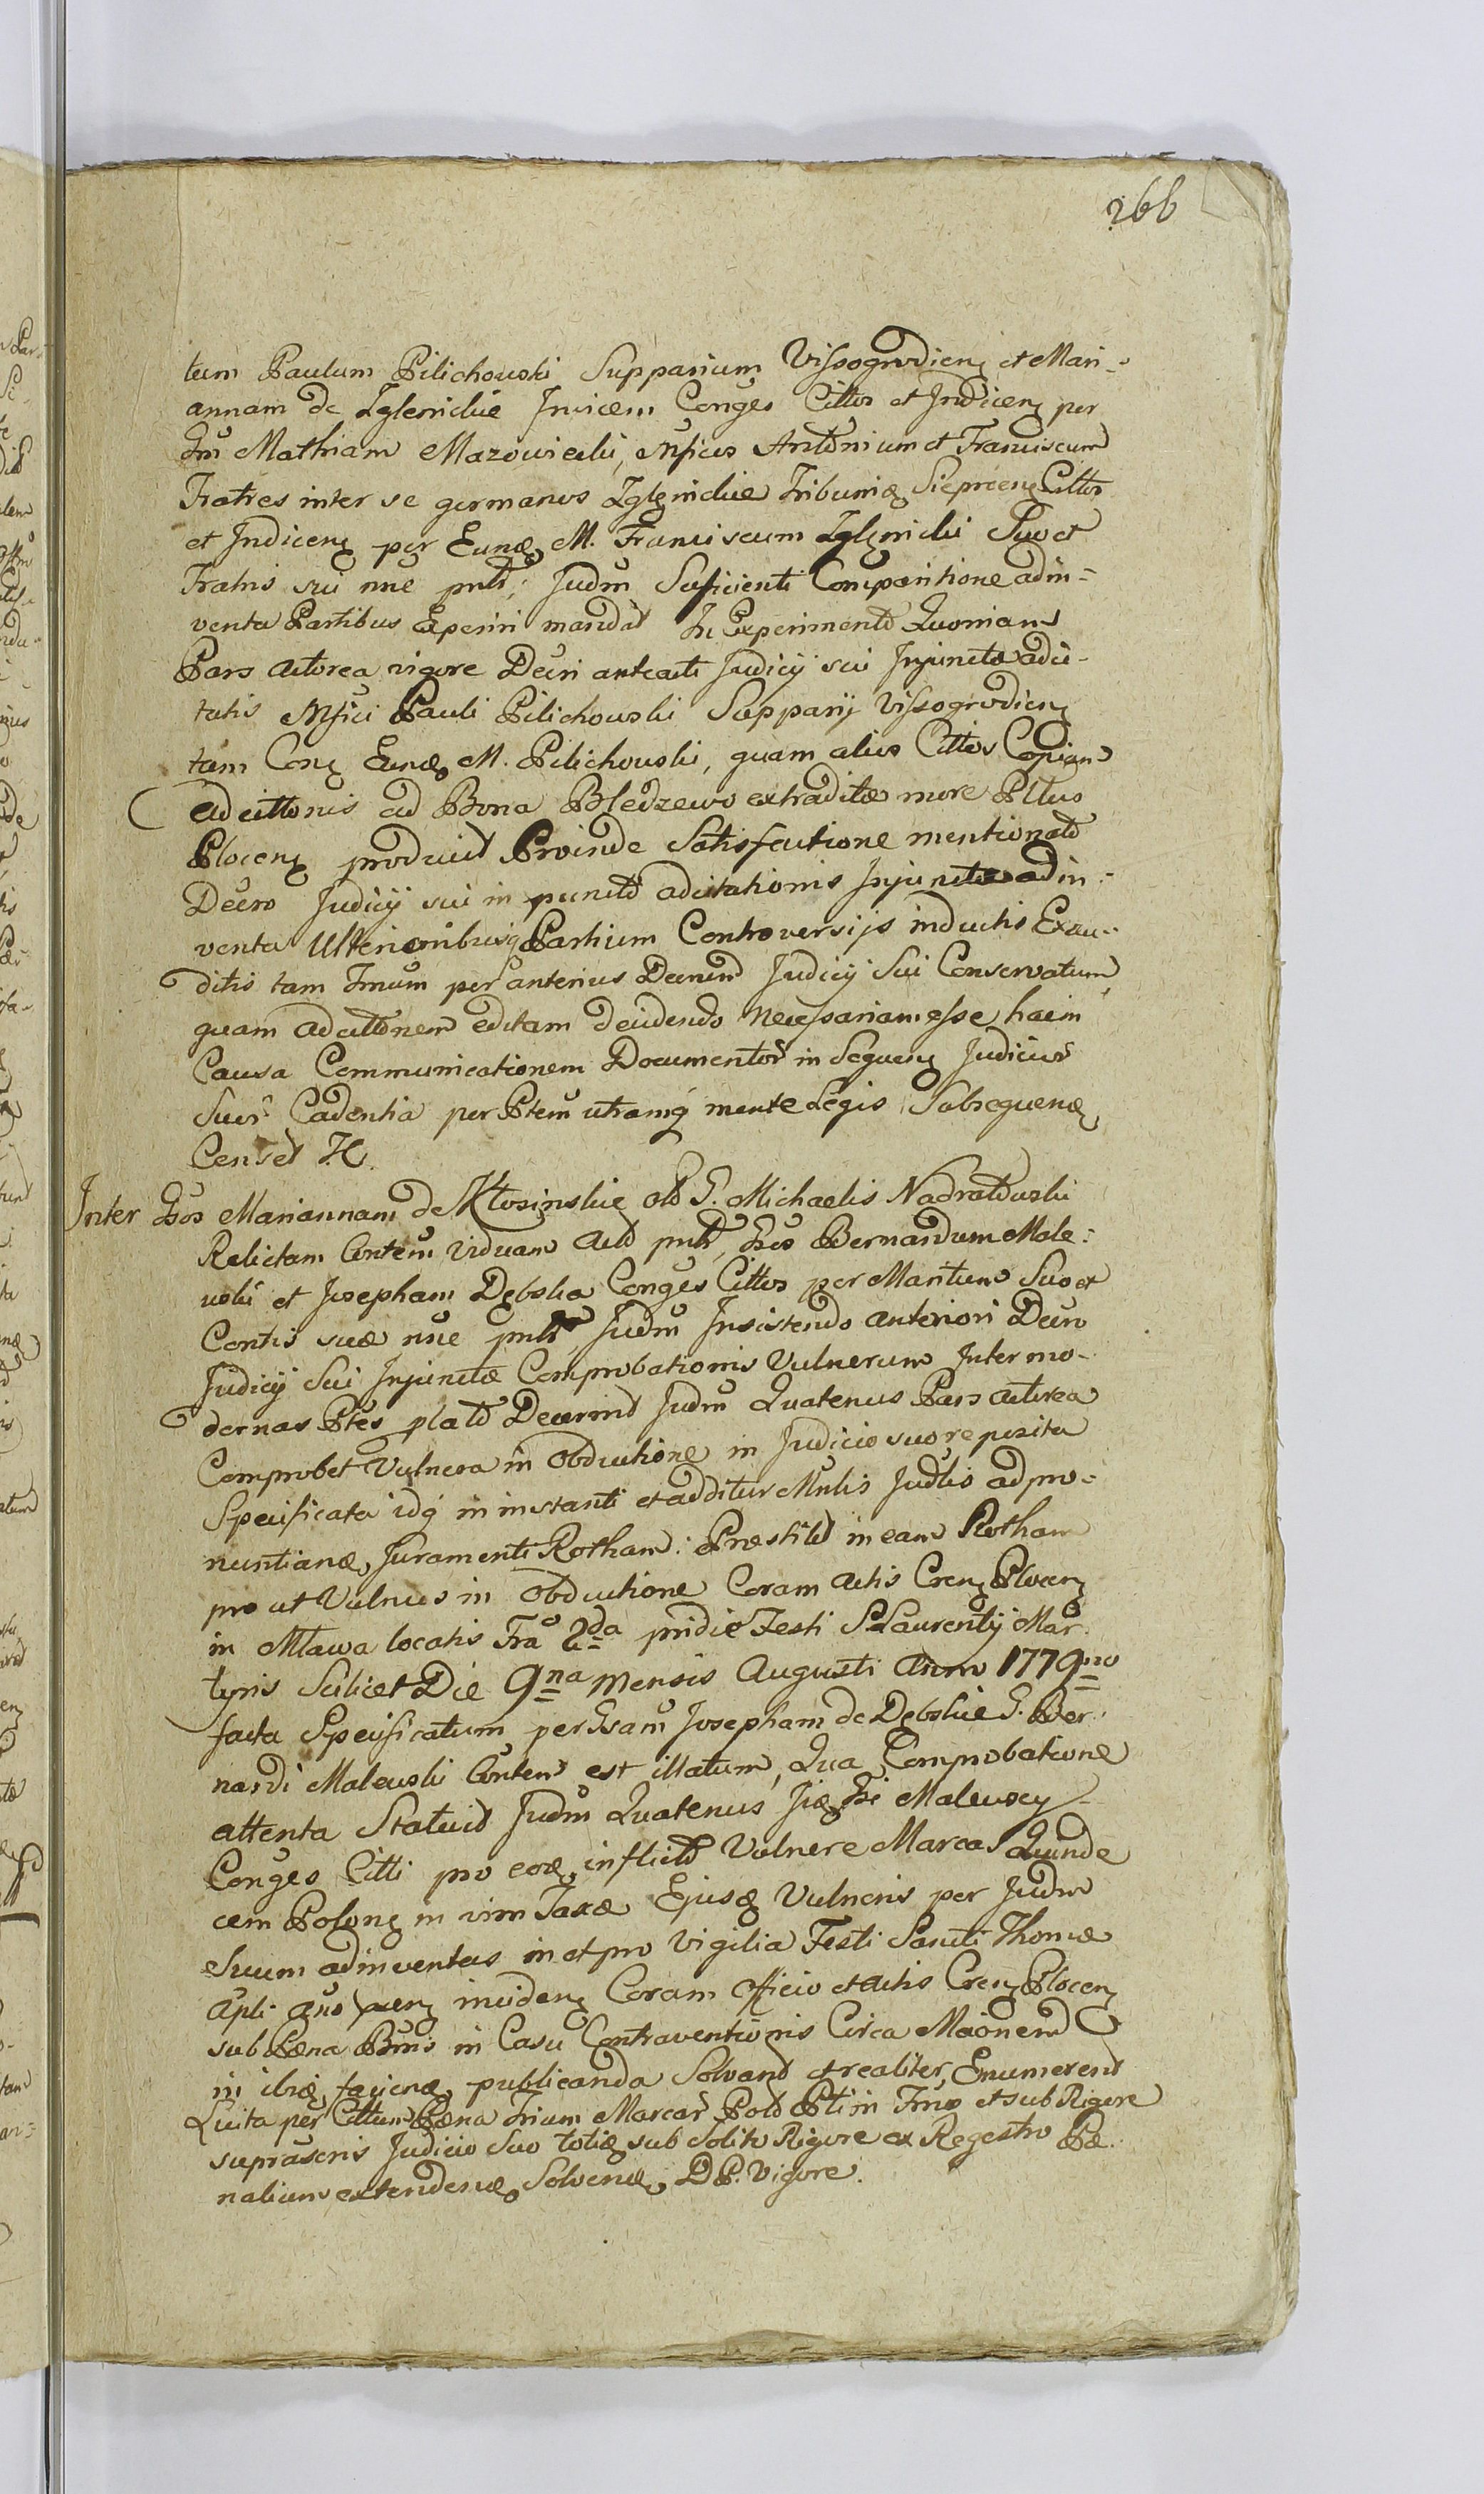 266
tum Paulum Pilichowski Supparium Vissogrodieng et Mari-
annam de Zglenickie Invicem Conges Cittos et Indiceng per
Gm Mathiam Mazowiecki, Mficos Antonium et Franciscum
Fratres inter se germanos Zglenickie Tribunig Siepreeng Cittos
et Indiceng per Eundg M. Franciscum Zglenicki Suo et
Fratris sui nne pnts; Judm Suficienti Comparitione adin-
venta Partibus Experiri mandat In Experimento Quoniam
Pars actorea vigore Decri anteacti Judicij sui Injunctae adci-
tatis Mfici Pauli Pilichowski Supparij Vissogrodieng
tam Cong Eundg M. Pilichowski, quam alios Cittos Copiam
adcittonis ad Bona Bledzewo extraditae more Pltus
Ploceng produxit Proinde Satisfactione mentionato
Decro Judicij sui in puncto adcitationis Injunctae adin-
venta Ulterioribusq Partium Controversijs inductis Exau-
ditis tam Fmum per anterius Decretum Judicij Sui Conservatum,
quam adcittonem editam decidendo necessariam esse hac in
Causa Communicationem Documentor in Sequeng Judicior
Suor Cadentia per Ptem utramq mente Legis Subsequeng
Censet H.
Inter Gsos Mariannam de Kłosinskie olo G. Michaelis Nadratowski
Relictam Contem Viduam Act pnts, Gsos Bernardum Male-
wski et Josepham Dębska Conges Cittos per Maritum Suo et
Contis suae nne pnts Judm Insistendo anteriori Decro
Judicij Sui Injunctae Comprobationis Vulnerum Inter mo-
dernas Ptes plato Decernit Judm Quatenus Pars actorea
Comprobet Vulnera in Obductione in Judicio suo reposita
Specificata idq in instanti et additur Mnlis Judlis ad pro-
nuntiang Juramenti Rotham: Praestitit in eam Rotham
pro ut Vulnus in Obductione Coram Actis Creng Ploceng
in Mława locatis Fra 2da pridie Festi S. Laurentij Mar-
tyris Scilicet Die 9na mensis Augusti Anno 1779no
facta Specificatum per Gsam Josepham de Dębskie G. Ber-
nardi Malewski Contem est illatum, Qua Comprobatione
attenta Statuit Judm Quatenus Jig Gsi Malewscy
Conges Citti pro eog inflicto Vulnere Marcas Quinde
cem Polong in vim Taxae Ejusg Vulneris per Judm
Suum adinventas in et pro Vigilia Festi Sancti Thomae
Apli Ano pnceng incideng Coram Officio et Actis Creng Ploceng
sub Paena Bnnis in Casu Contraventionis Circa Maonem
in ibig facieng publicanda Solvant et realiter Enumerent
Luita per Cittum Paena Trium Marcar Polo Pti in Fmo et sub Rigore
suprascris Judicio Suo totig sub Solito Rigore ex Regestro Pae-
nalium extendeng Solveng D P. Vigore.